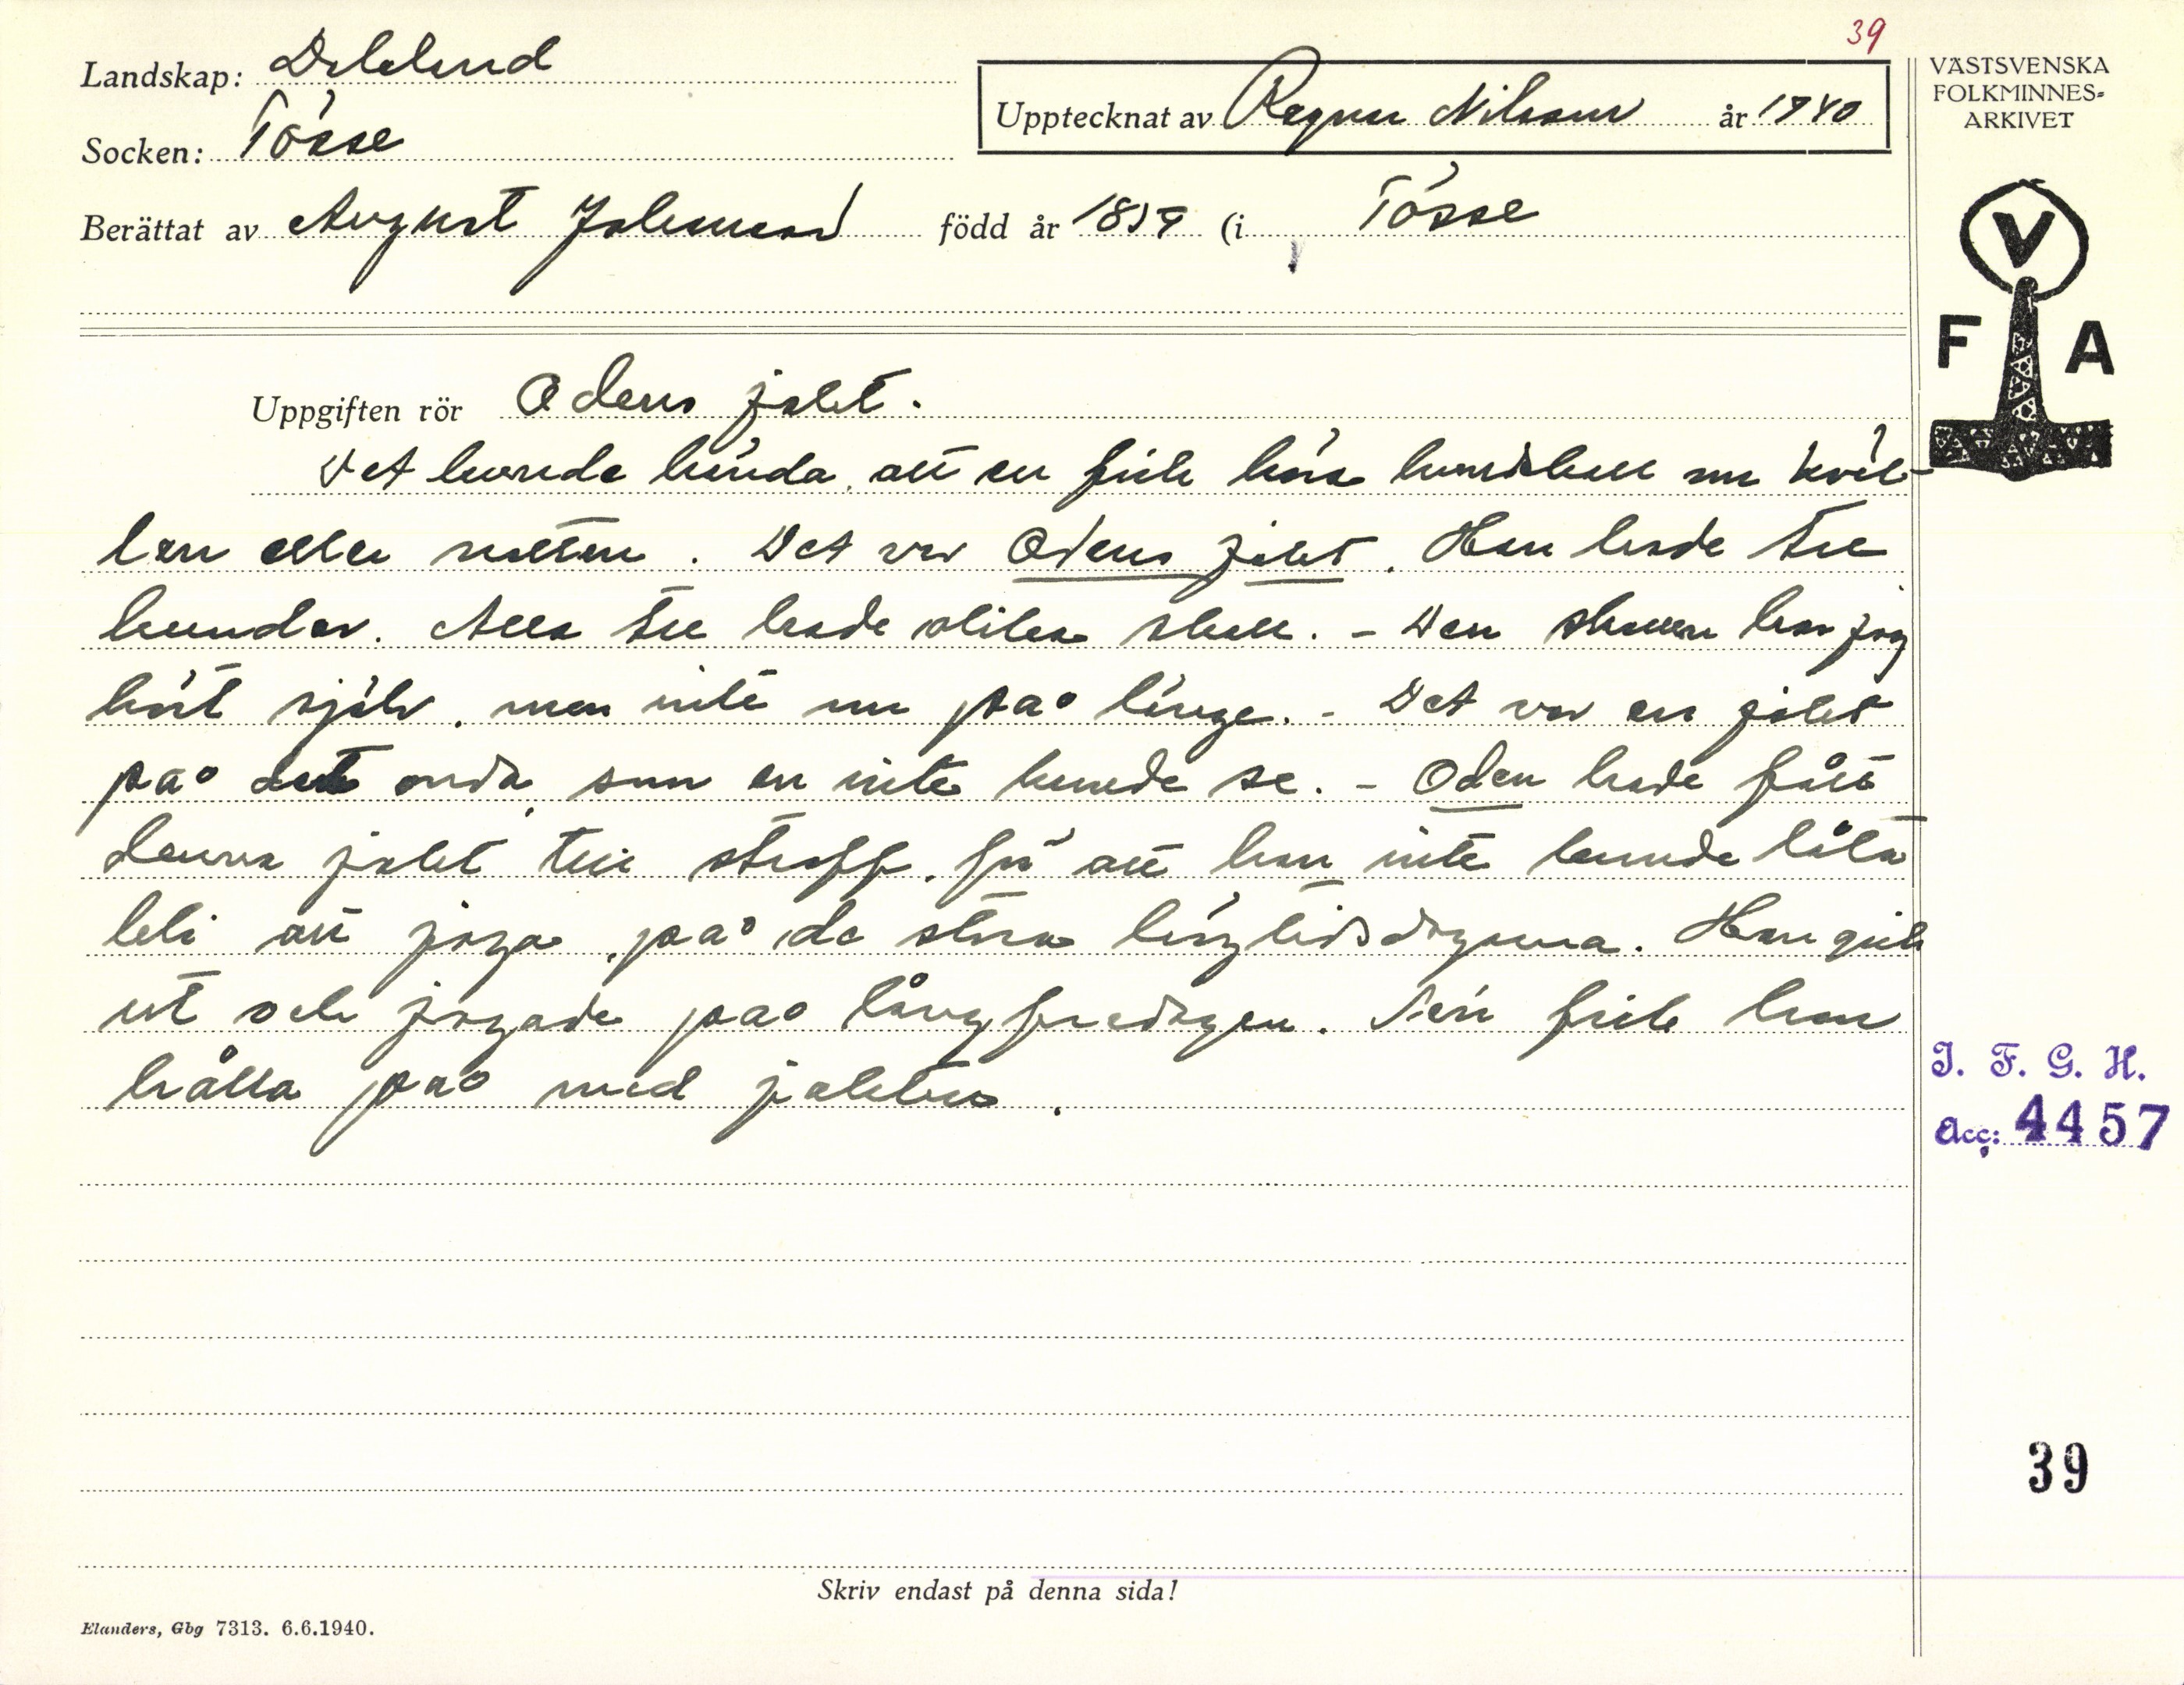 39
Landskap: Dalsland
Upptecknat av Ragnar Nilsson år 1940
VÄSTSVENSKA
FOLKMINNES-
ARKIVET
Socken: Tösse
Berättat av August Johansson född år (i Tösse
V
F A
Uppgiften rör Odens jakt.
Det kunde hända, att en fick höra hundskall om kväl-
len eller natten. Det var Odens jakt. Han hade tre
hundar. Alla tre hade olika skall. - Den skallen har jag
hört själv, men inte nu på länge. - Det var en jakt
på det onda, som en inte kunde se. - Oden hade fått
denna jakt till straff, för att han inte kunde låta
bli att jaga, på de stora högtidsdagarna. Han gick
ut och jagade på långfredagen. Sen fick han
hålla på med jakten.
I. F. G. H.
Acc: 4457
39
Skriv endast på denna sida!
Elanders, Gbg 7313. 6.6.1940.